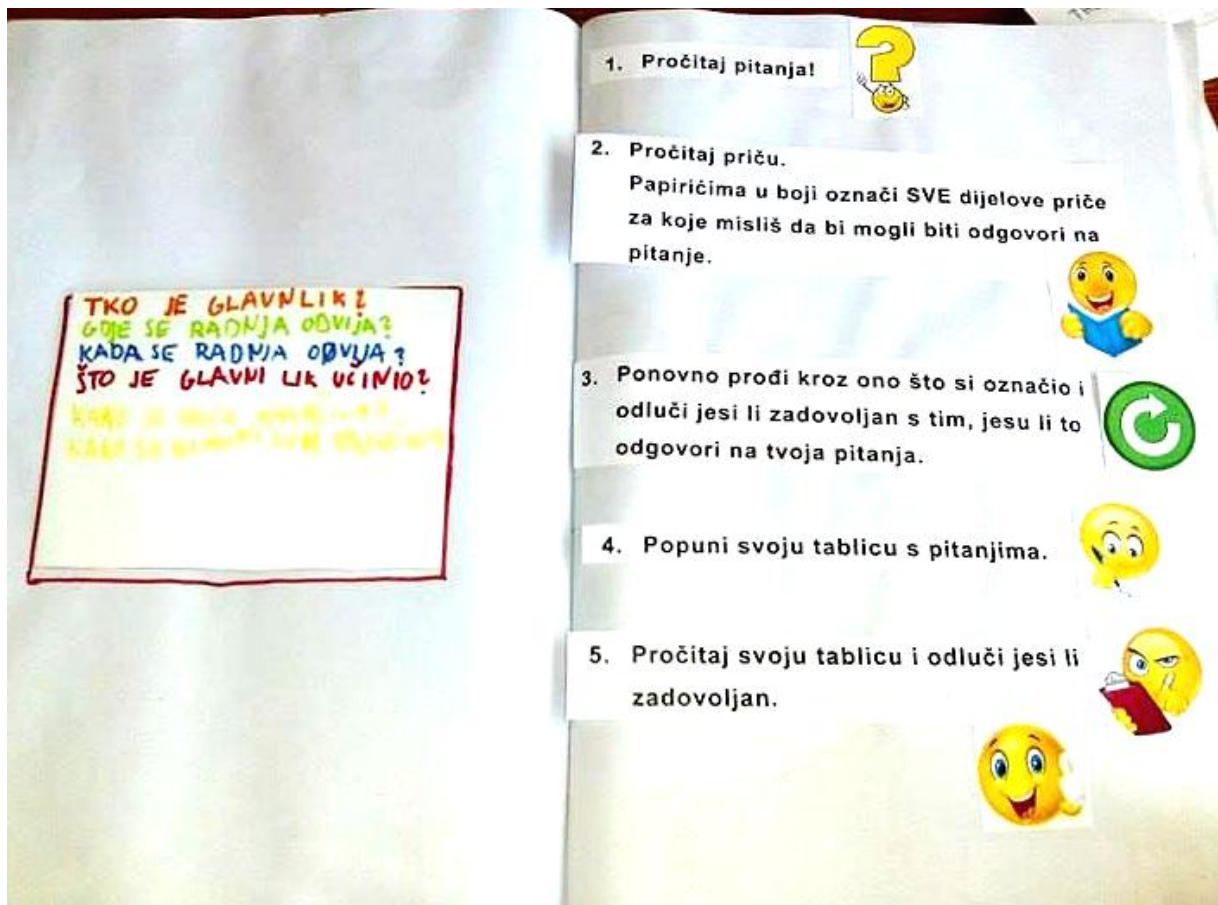 TKO JE GLAVNLIK?
GDJE SE RADNJA ODVIJA?
KADA SE RADNJA ODVIJA?
ŠTO JE GLAVNI LIK UČINIO?
1. Pročitaj pitanja!
2. Pročitaj priču.
Papirićima u boji označi SVE dijelove priče
za koje misliš da bi mogli biti odgovori na
pitanje.
3. Ponovno prođi kroz ono što si označio i
odluči jesi li zadovoljan s tim, jesu li to
odgovori na tvoja pitanja.
4. Popuni svoju tablicu s pitanjima.
5. Pročitaj svoju tablicu i odluči jesi li
zadovoljan.